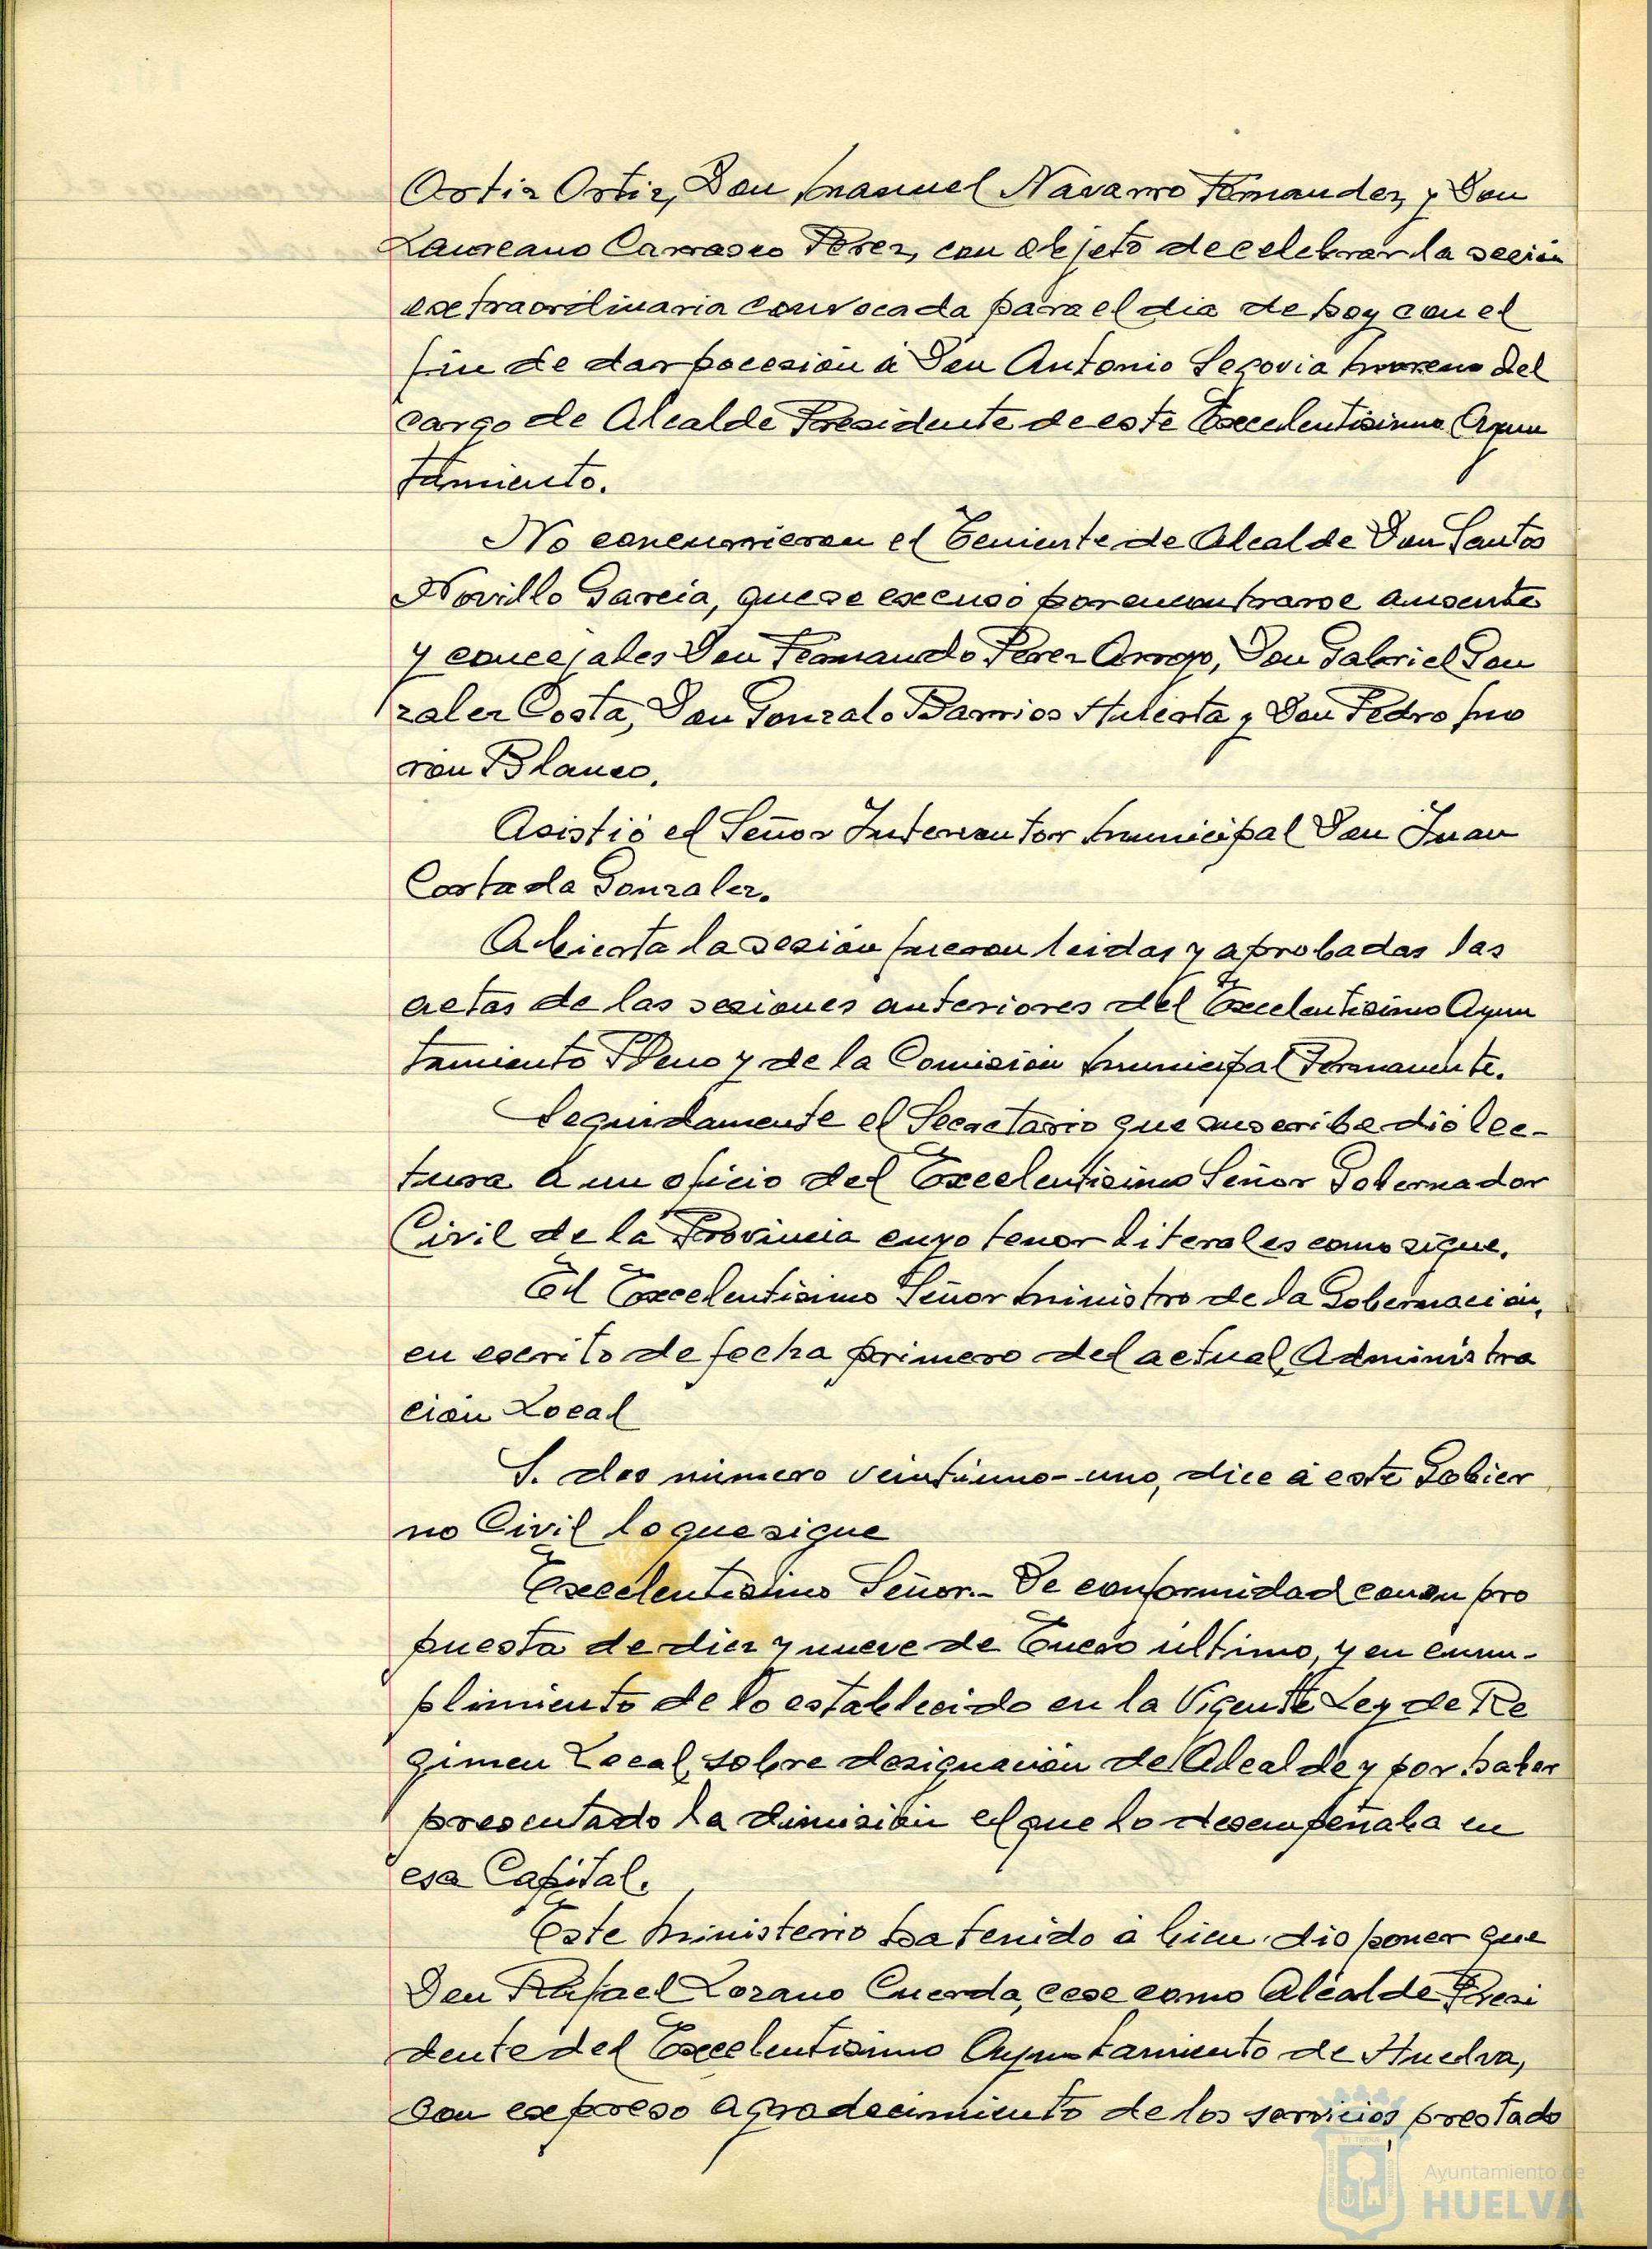 Ortiz Ortiz, Don Manuel Navarro Fernandez, y Don
Laureano Carrasco Perez, con objeto de celebrar la sesión
extraordinaria convocada para el dia de hoy con el
fin de dar pocesión a Don Antonio Segovia Moreno del
cargo de Alcalde Presidente de este Excelentisimo Ayun
tamiento.
No concurrieron el Teniente de Alcalde Don Santos
Novillo Garcia, que se escusó por encontrarse ausente
y concejales Don Fernando Perez Arroyo, Don Gabriel Gon
zalez Costa, Don Gonzalo Barrios Huberta y Don Pedro Mo
ron Blanco.
Asistió el Señor Interventor Municipal Don Juan
Cortada Gonzalez.
Abierta la sesión fueron leidas y aprobadas las
actas de las sesiones anteriores del Excelentisimo Ayun
tamiento Pleno y de la Comisión Municipal Permanente.
Seguidamente el Secretario que suscribe dió lec-
tura a un oficio del Excelentisimo Señor Gobernador
Civil de la Provincia cuyo tenor literal es como sigue.
El Excelentisimo Señor Ministro de la Gobernación,
en escrito de fecha primero del actual, Administra
ción Local
S. dos número veintiuno-uno, dice a este Gobier
no Civil lo que sigue
Excelentisimo Señor.- De conformidad con su pro
puesta de diez y nueve de Enero último, y en cum-
plimiento de lo establecido en la Vigente Ley de Re
gimen Local, sobre designación de Alcalde y por haber
presentado la dimisión el que lo desempeñaba en
esa Capital.
Este Ministerio ha tenido a bien disponer que
Don Rafael Lozano Cuerda, cese como Alcalde Presi
dente del Excelentisimo Ayuntamiento de Huelva,
con expreso agradecimiento de los servicios prestado
Ayuntamiento de
HUELVA